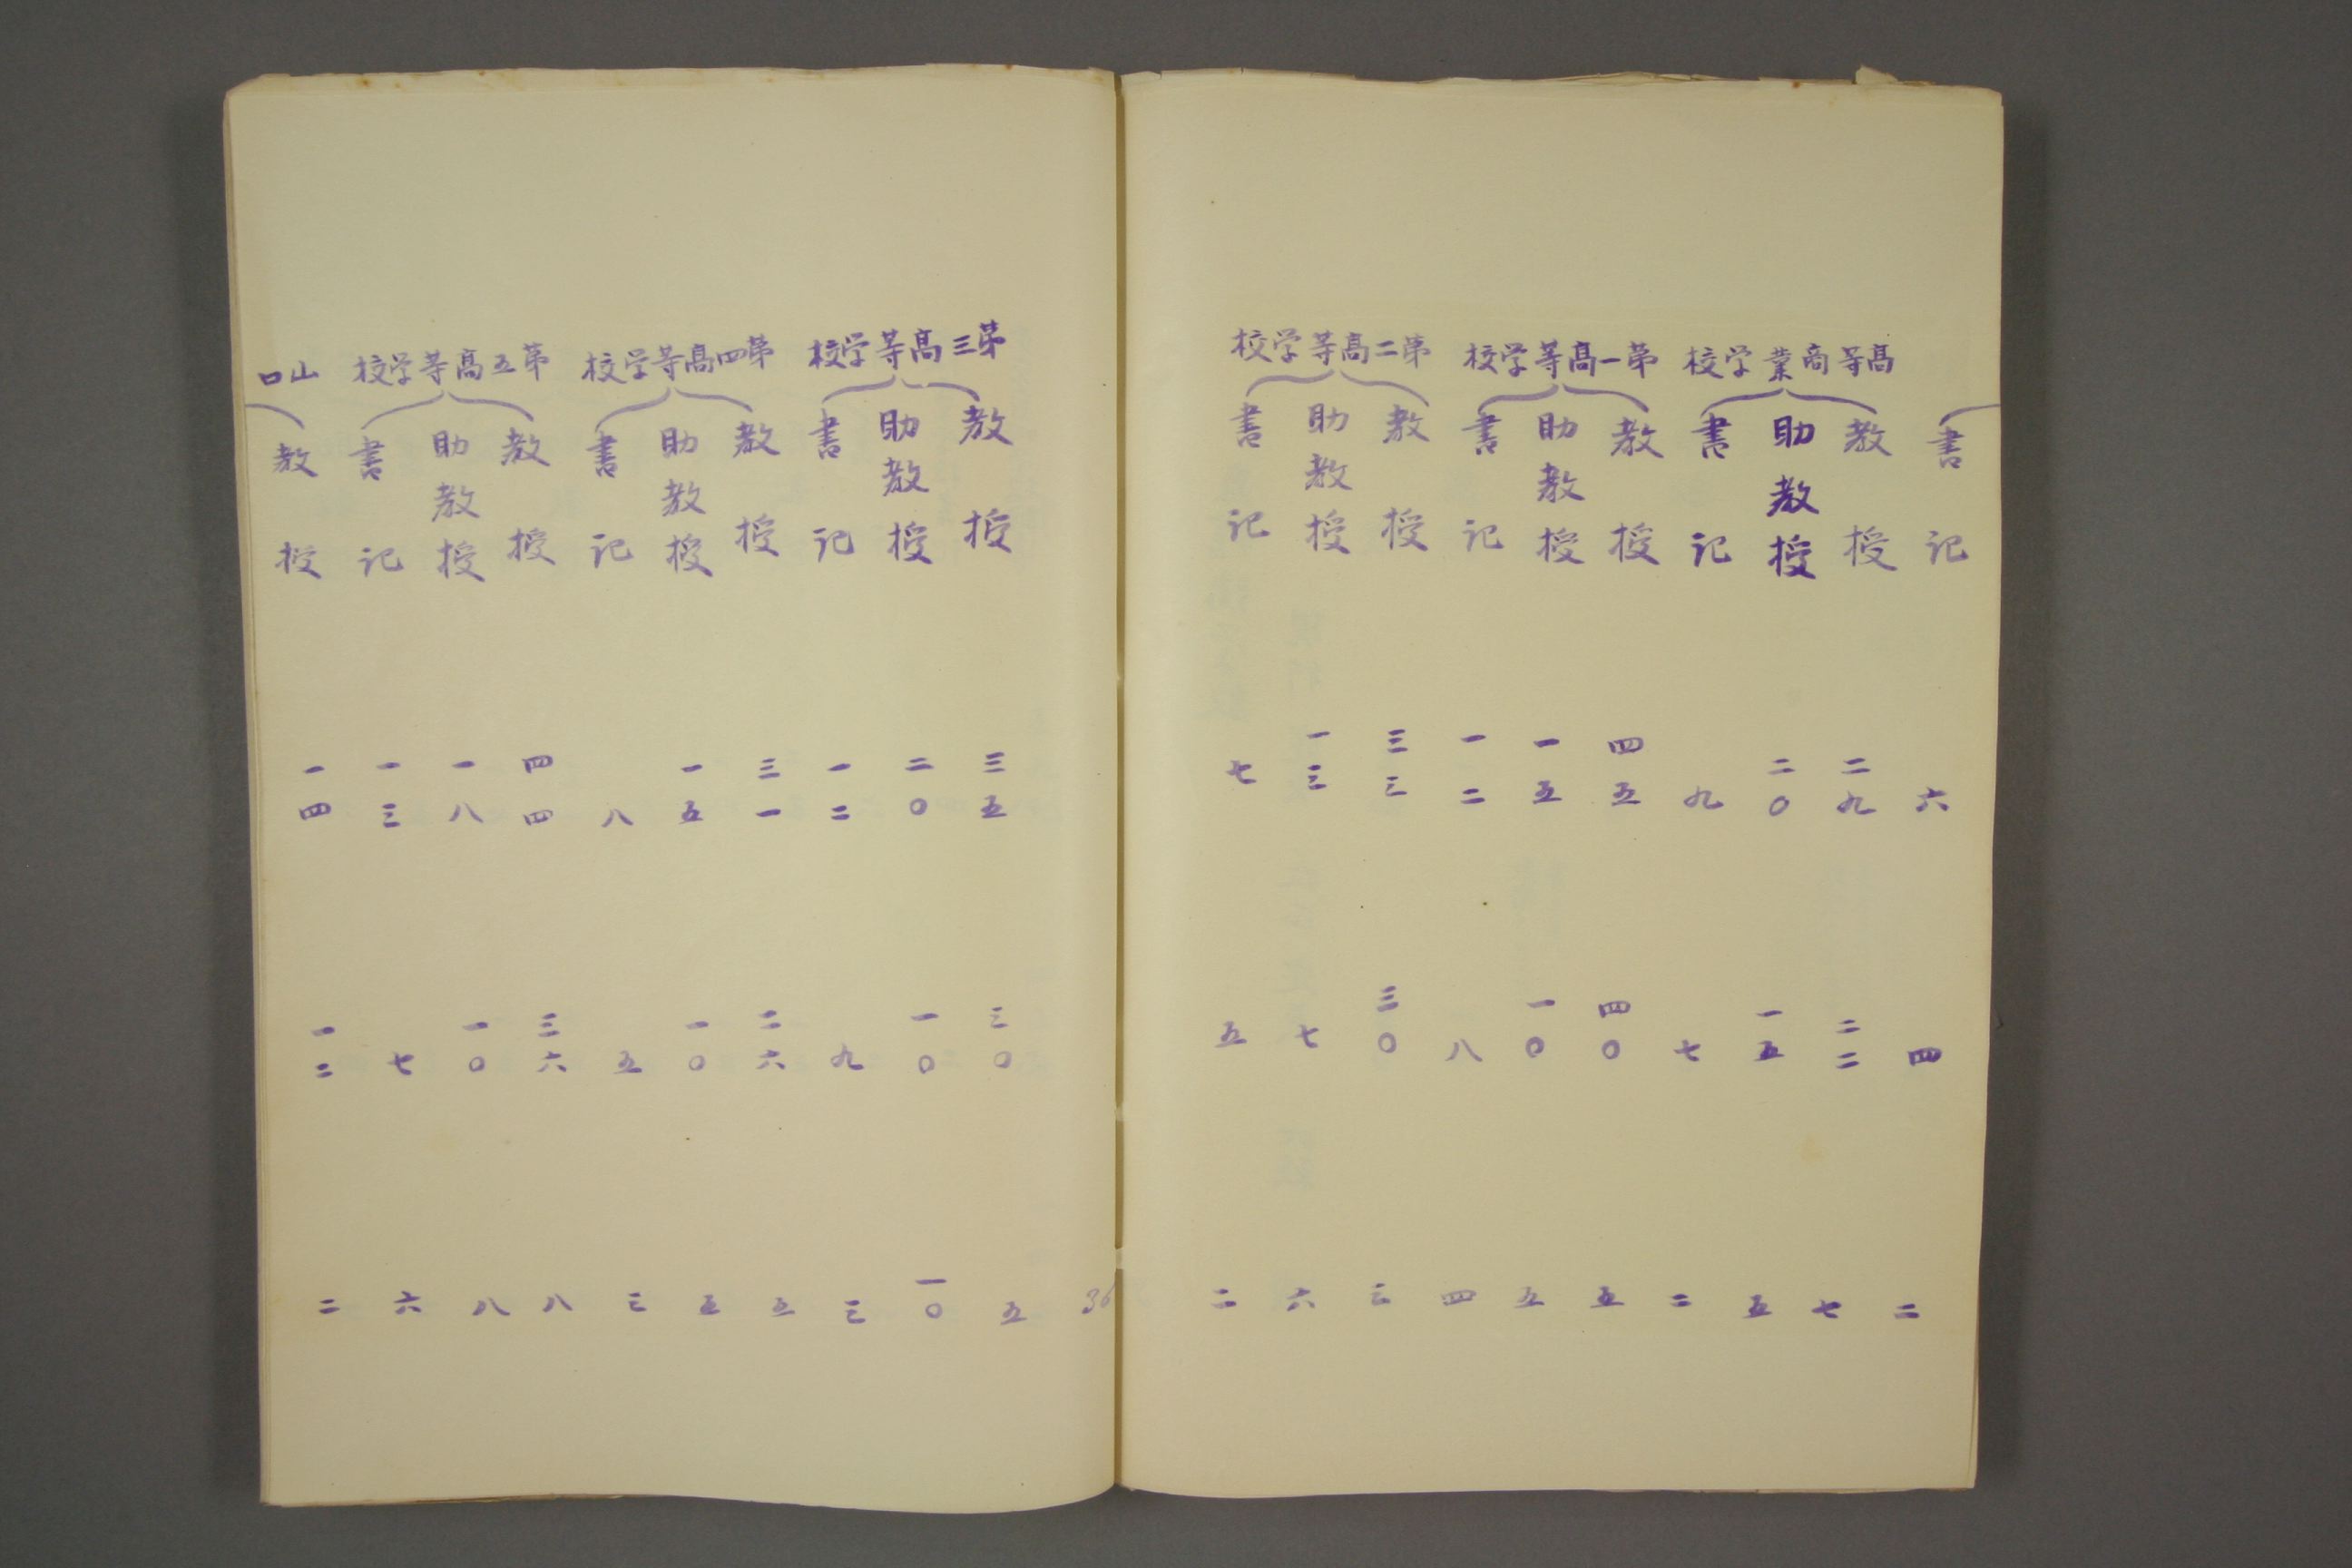 書記 六 四 二
高等商業学校
教授 二九 二二 七
助教授 二〇 一五 五
書記 九 七 二
第一高等学校
教授 四五 四〇 五
助教授 一五 一〇 五
書記 一二 八 四
第二高等学校
教授 三三 三〇 三
助教授 一三 七 六
書記 七 五 二
36
第三高等学校
教授 三五 三〇 五
助教授 二〇 一〇 一〇
書記 一二 九 三
第四高等学校
教授 三一 二六 五
助教授 一五 一〇 五
書記 八 五 三
第五高等学校
教授 四四 三六 八
助教授 一八 一〇 八
書記 一三 七 六
山口
教授 一四 一二 二